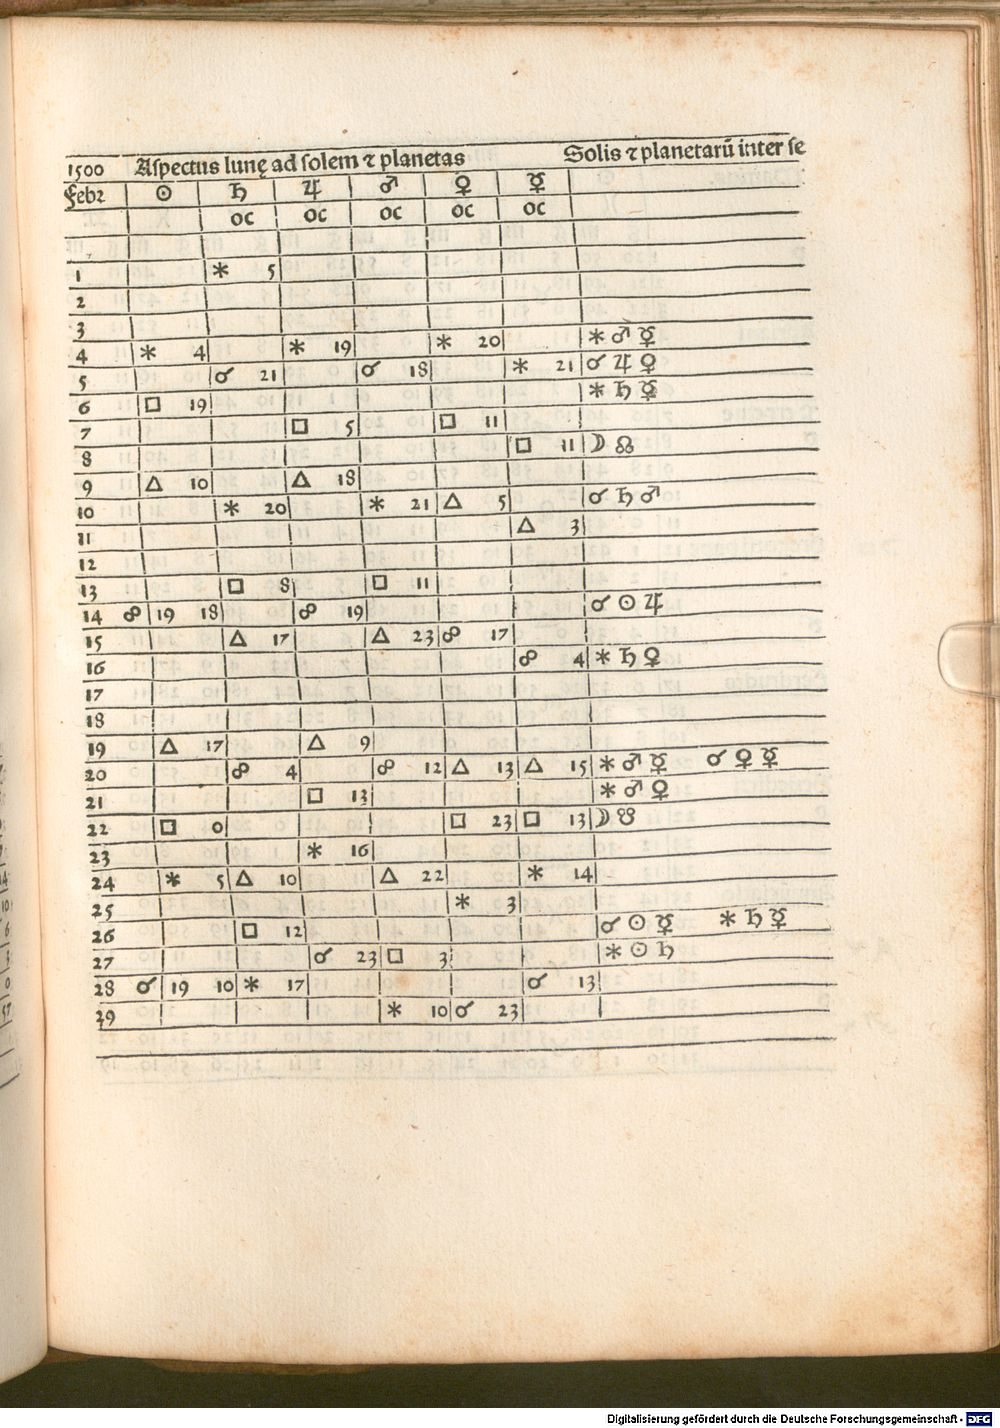 1500 Aspectus lunę ad solem ⁊ planetas Solis ⁊ planetarū inter se
Febr ☉ ♄ ♃ ♂ ♀ ☿
oc oc oc oc oc
1 ⚹ 5
2
3
4 ⚹ 4 ⚹ 19 ⚹ 20 ⚹ ♂ ☿
5 ☌ 21 ☌ 18 ⚹ 21 ☌ ♃ ♀
6 □ 19 ⚹ ♄ ☿
7 □ 5 □ 11
8 □ 11 ☽ ☊
9 △ 10 △ 18
10 ⚹ 20 ⚹ 21 △ 5 ☌ ♄ ♂
11 △ 3
12
13 □ 8 □ 11
14 ☍ 19 18 ☍ 19 ☌ ☉ ♃
15 △ 17 △ 23 ☍ 17
16 ☍ 4 ⚹ ♄ ♀
17
18
19 △ 17 △ 9
20 ☍ 4 ☍ 12 △ 13 △ 15 ⚹ ♂ ☿ ☌ ♀ ☿
21 □ 13 ⚹ ♂ ♀
22 □ 0 □ 23 □ 13 ☽ ☋
23 ⚹ 16
24 ⚹ 5 △ 10 △ 22 ⚹ 14
25 ⚹ 3
26 □ 12 ☌ ☉ ☿ ⚹ ♄ ☿
27 ☌ 23 □ 3 ⚹ ☉ ♄
28 ☌ 19 10 ⚹ 17 ☌ 13
29 ⚹ 10 ☌ 23
Digitalisierung gefördert durch die Deutsche Forschungsgemeinschaft - DFG